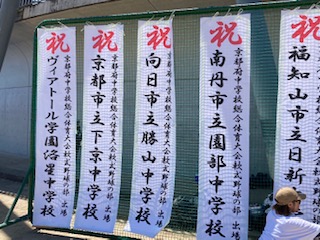 祝
京都府中学校総合体育大会軟式野球の部 出場
ヴィアトール学園洛星中学校
祝
京都府中学校総合体育大会軟式野球の部 出場
京都市立下京中学校
祝
京都府中学校総合体育大会軟式野球の部 出場
向日市立勝山中学校
祝
京都府中学校総合体育大会軟式野球の部 出場
南丹市立園部中学校
祝
福知山市立日新